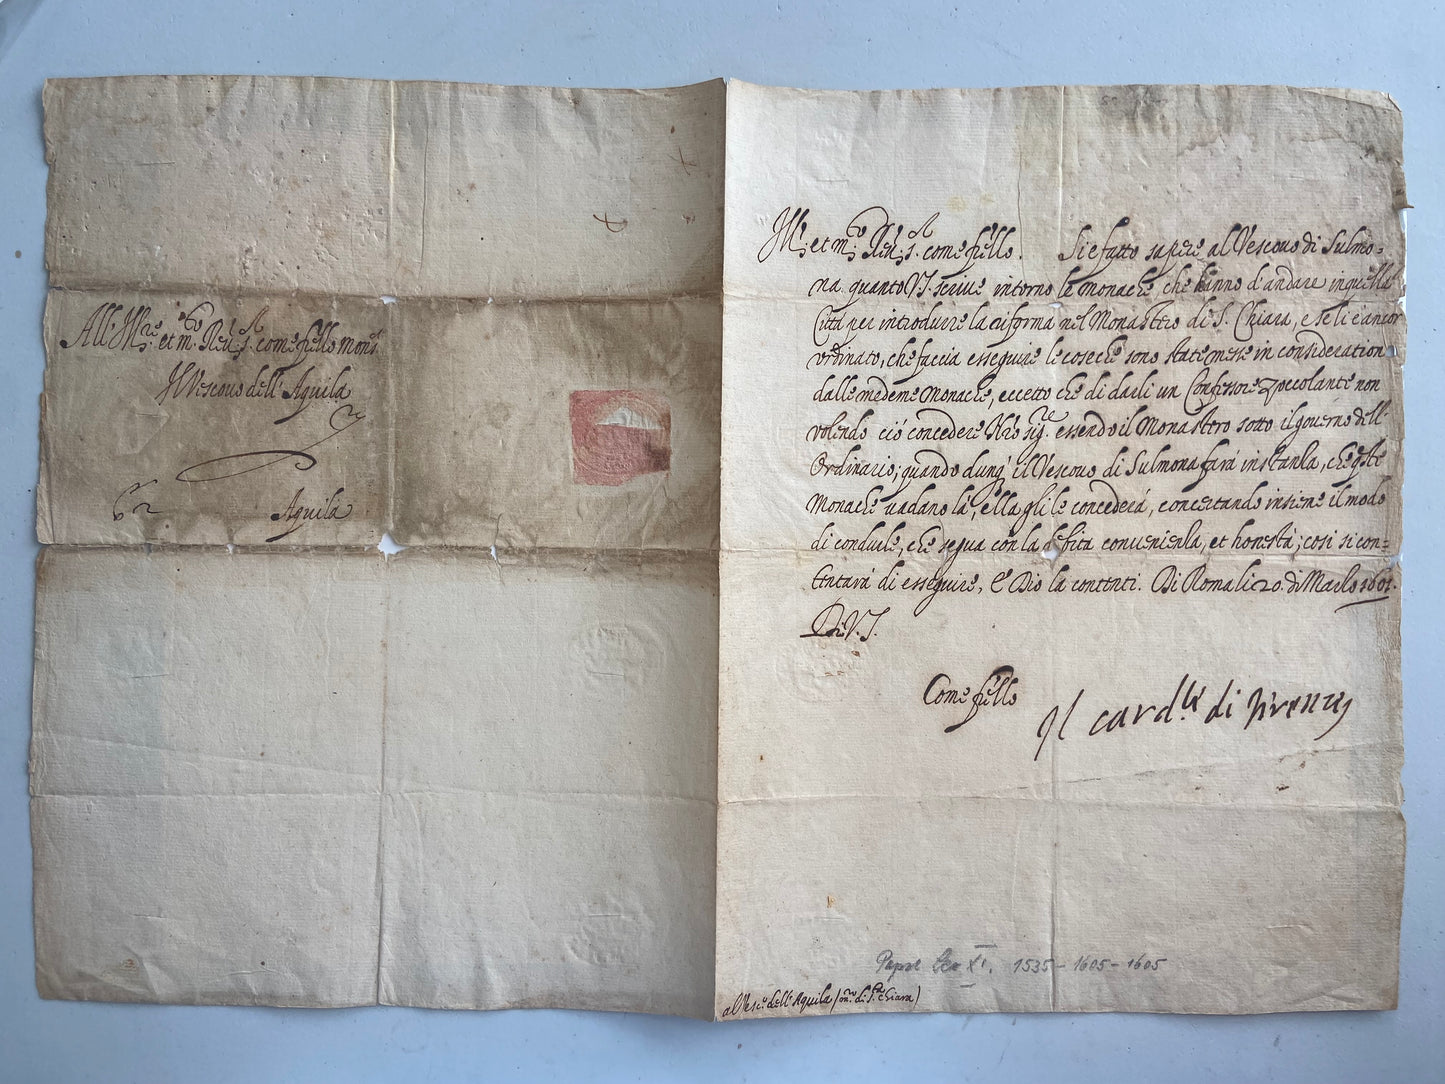 All' Ill.re et m.to Rev.do s.r come f'rello Mons.r
Il Vescovo dell' Aquila
Aquila
Ill.re et m.to Rev.do s.r come f'rello. Si è fatto sapere al Vescovo di Sulmo=
na quanto V.S. scrive intorno le monache che hanno d'andare in quella
Città per introdurre la riforma nel Monastero di S. Chiara, e se li è ancor
ordinato, che faccia esseguire le cose che sono state messe in consideration
dalle medeme Monache, eccetto che di darli un Confessore zoccolante non
volendo ciò concedere N'ro Sig.re essendo il Monastero sotto il governo dell'
Ordinario; quando dunq' il Vescovo di Sulmona farà instanza, che q'ste
Monache vadano là, ella gli le concederà, concertando insieme il modo
di condurle, che segua con la debita convenienza, et honestà; così si con=
tentarà di esseguire, e Dio la contenti. Di Roma li 20. di Marzo 1601.
Di V.S.
Come f'rello
Il card.le di firenze
Papst Leo XI. 1535 - 1605 - 1605
al Vesc.o dell' Aquila (mon.ro di S.ta Chiara)